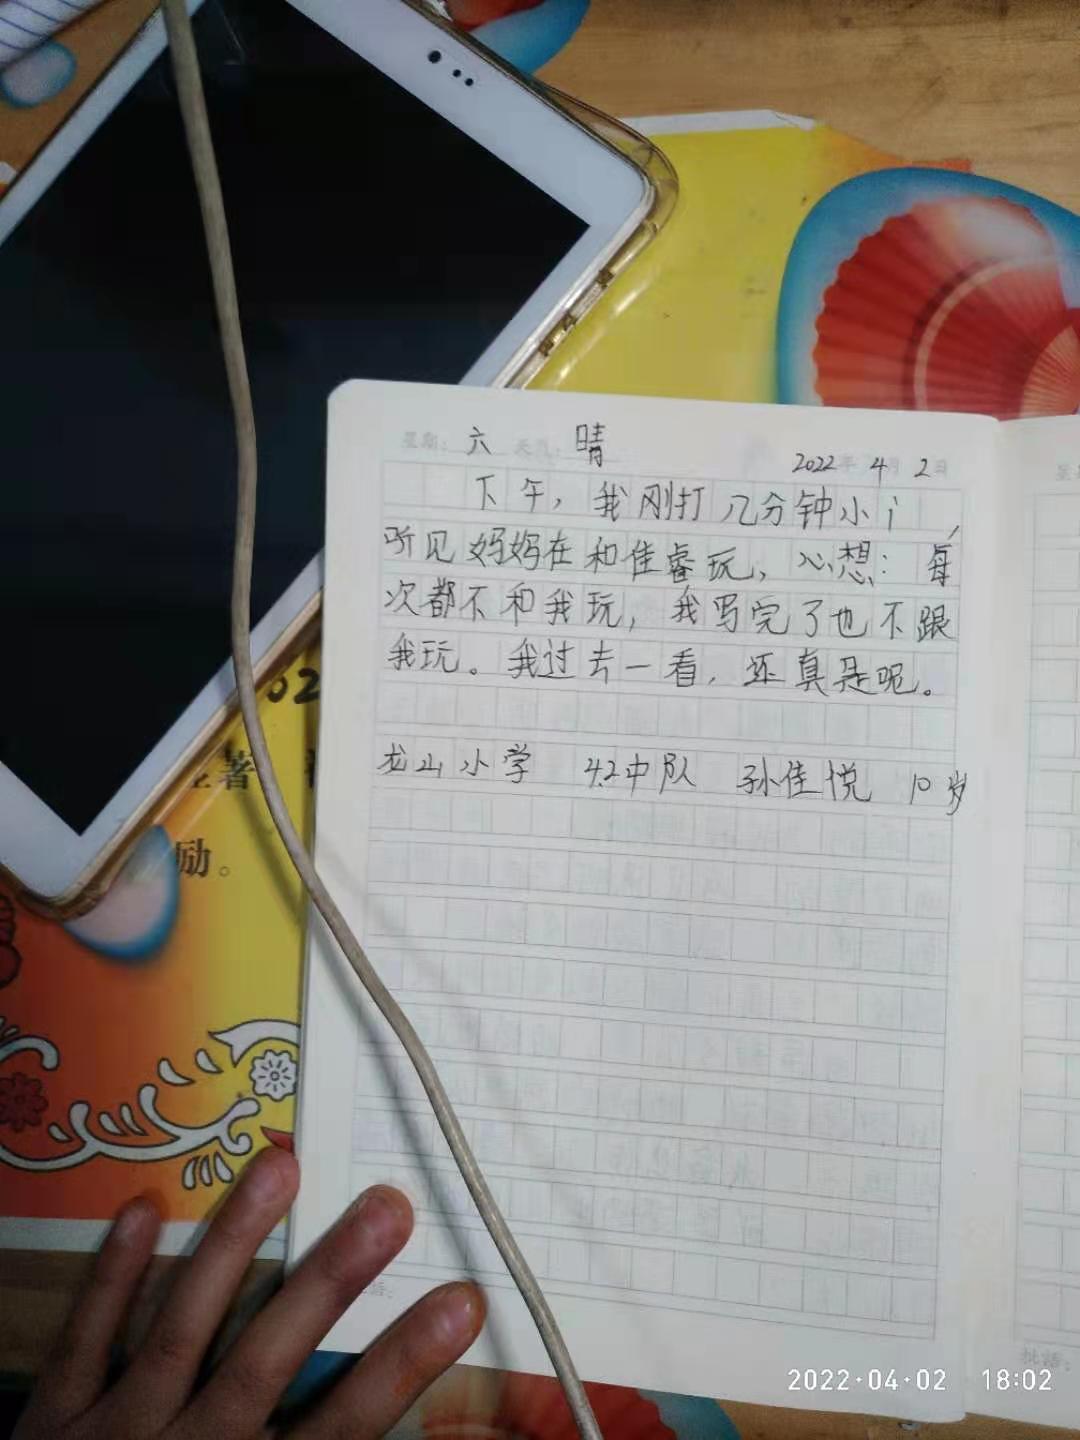 星期：六 天气：晴
2022年4月2日
下午，我刚打几分钟小讠，
听见妈妈在和佳睿玩，心想：每
次都不和我玩，我写完了也不跟
我玩。我过去一看，还真是呢。
龙山小学 4.2中队 孙佳悦 10岁
02
著
励。
批语：
2022·04·02 18:02